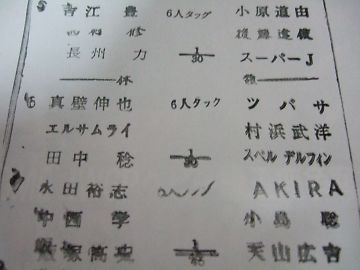 5 吉江豊 6人タッグ 小原道由
四和修 後藤達俊
長州力 1/30 スーパーJ
休憩
6 真壁伸也 6人タッグ ツバサ
エルサムライ 村浜武洋
田中稔 1/30 スペルデルフィン
永田裕志 AKIRA
中西学 小島聡
飯塚高史 天山広吉